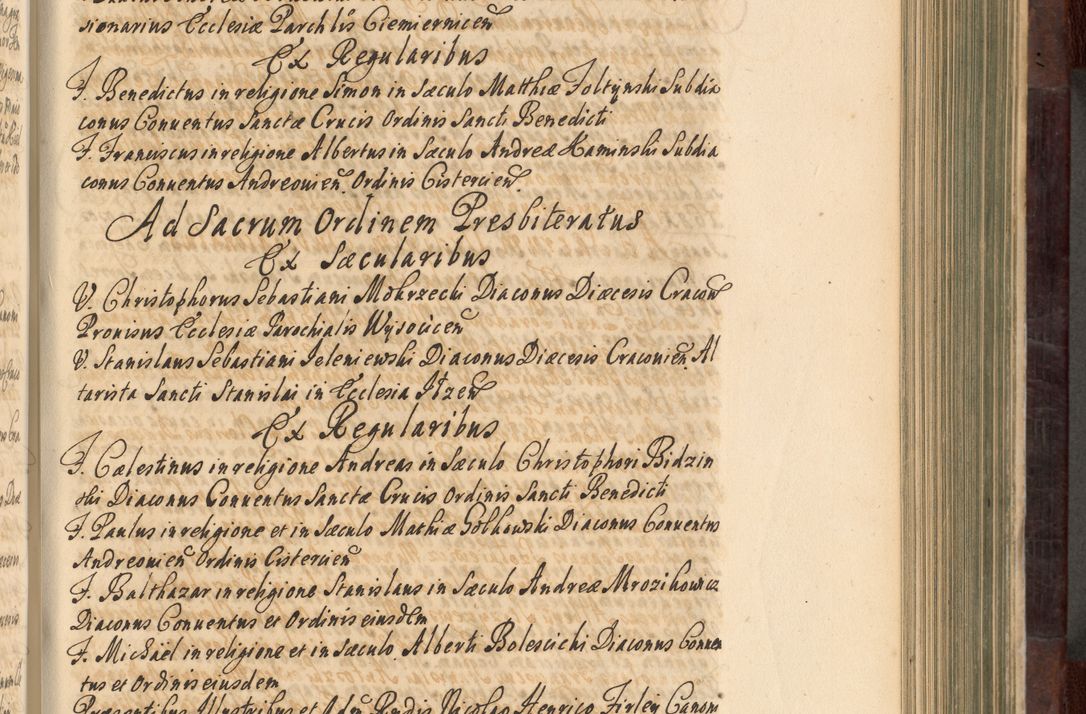 sionarius Ecclesiæ Parchlis Ciemiernicen
Ex Regularibus
F. Benedictus in religione Simon in Sæculo Matthiæ Foltynski Subdia
conus Conuentus Sanctæ Crucis Ordinis Sancti Benedicti
F. Franciscus in religione Albertus in Sæculo Andreæ Kaminski Subdia
conus Conuentus Andreouien. Ordinis Cistercien.
Ad Sacrum Ordinem Presbiteratus
Ex Sæcularibus
V. Christophorus Sebastiani Mokrzecki Diaconus Diæcesis Cracou
Prouisus Ecclesiæ Parochialis Wysocicen
V. Stanislaus Sebastiani Jeleniewski Diaconus Diæcesis Craconien. Al
tarista Sancti Stanislai in Ecclesia Itzen
Ex Regularibus
F. Cælestinus in religione Andreas in Sæculo Christophori Bidzin
ski Diaconus Conuentus Sanctæ Crucis Ordinis Sancti Benedicti
F. Paulus in religione et in Sæculo Mathiæ Gołkowski Diaconus Conuentus
Andreouien Ordinis Cistercien
F. Balthazar in religione Stanislaus in Sæculo Andreæ Mrozikowicz
Diaconus Conuentus et Ordinis eiusdem
F. Michael in religione et in Sæculo Alberti Bolescicki Diaconus Conuen
tus et Ordinis eiusdem
Præsentibus Illustribus et Adm Rndis Nicolao Henrico Firley Canoni